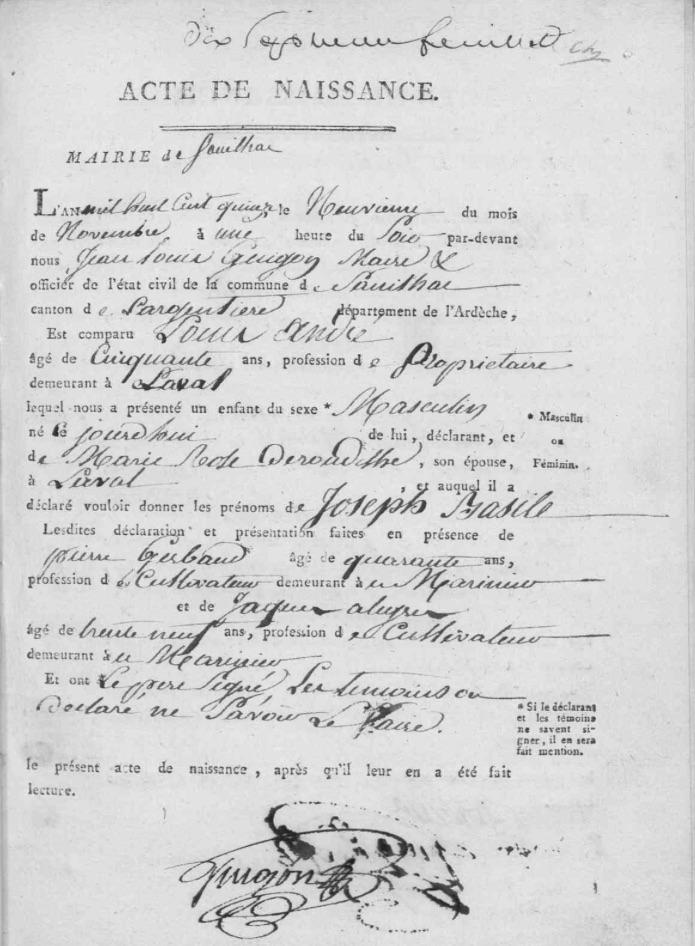 dix septieme feuillet
ACTE DE NAISSANCE.
MAIRIE de Sanilhac
L'AN mil huit Cent quinze le Neuvieme du mois
de Novembre à une heure du Soir par-devant
nous Jean Louis Guigon Maire &
officier de l'état civil de la commune de Sanilhac
canton de Largentiere département de l'Ardèche,
Est comparu Louis André
âgé de Cinquante ans, profession de proprietaire
demeurant à Laval
lequel nous a présenté un enfant du sexe * Masculin
* Masculin
ou
Féminin.
né ce jourdhui de lui, déclarant, et
de Marie Rose , son épouse,
à Laval , et auquel il a
déclaré vouloir donner les prénoms de Joseph Basile
Lesdites déclaration et présentation faites en présence de
pierre Gerbaud âgé de quarante ans,
profession de Cultivateur demeurant à
et de Jaques
âgé de trente neuf ans, profession de Cultivateur
demeurant à
Et ont Le pere Signé, Les temoins on
Declaré ne Savoir Le Faire.
* Si le déclarant
et les témoins
ne savent si-
gner, il en sera
fait mention.
le présent acte de naissance, après qu'il leur en a été fait
lecture.
Guigon